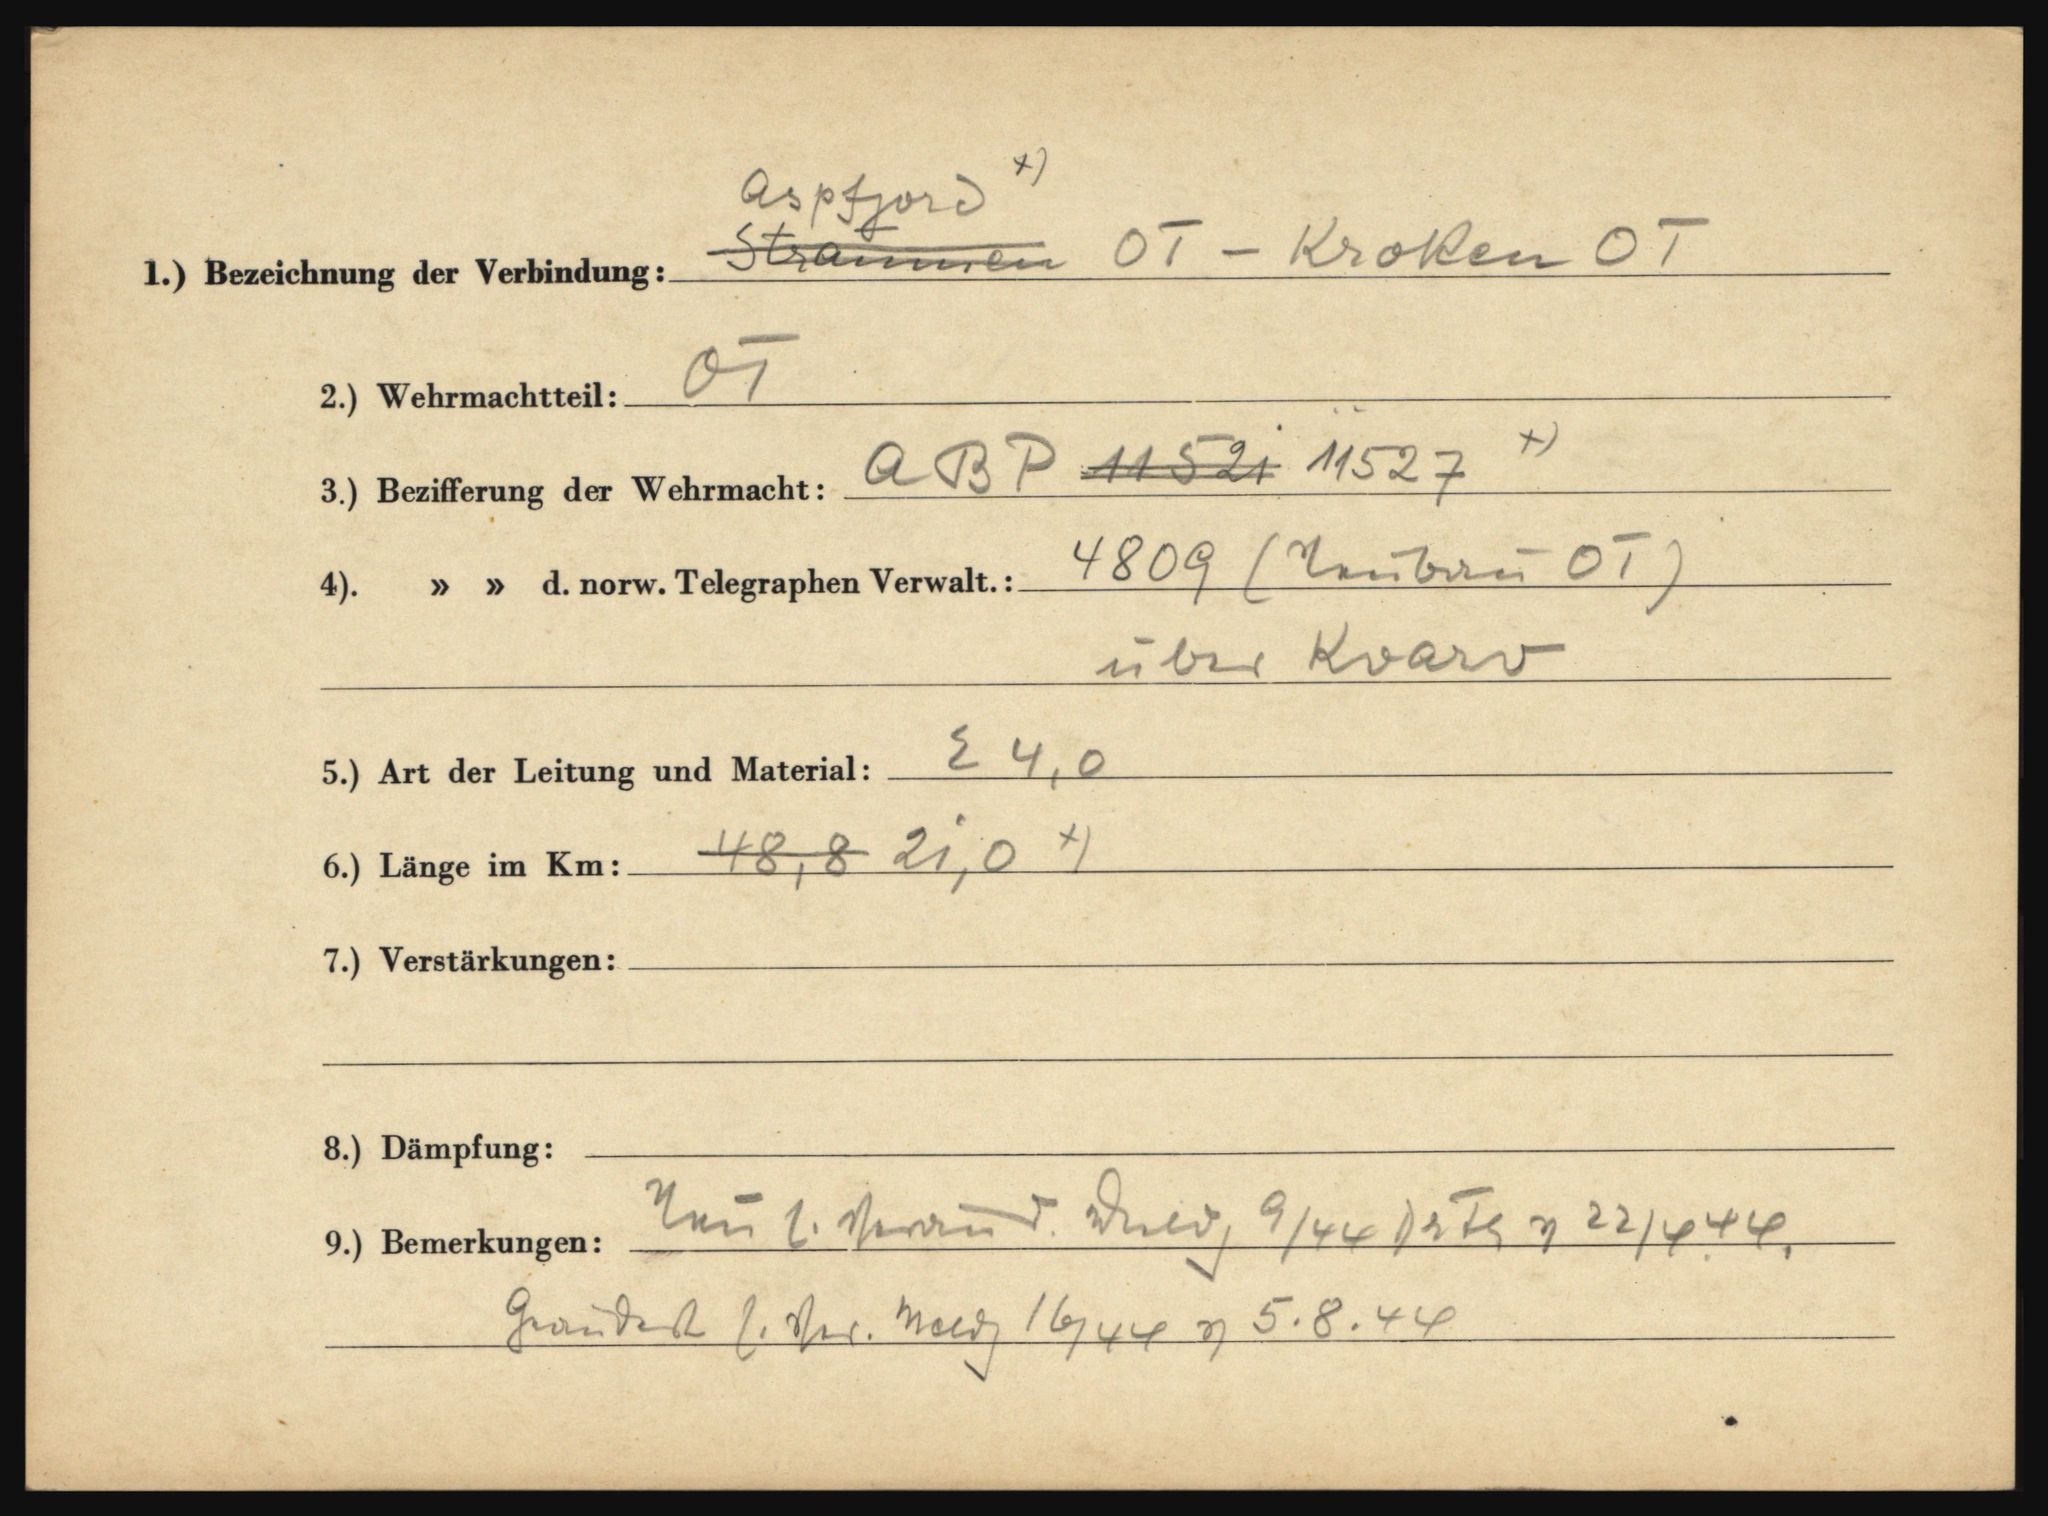 Aspfjord x)
1.) Bezeichnung der Verbindung: Straumen OT – Kroken OT
2.) Wehrmachtteil: OT
3.) Bezifferung der Wehrmacht: ABP 11521 11527 x)
4). » » d. norw. Telegraphen Verwalt.: 4809 (Neubau OT)
über Kvarv
5.) Art der Leitung und Material: 4,0
6.) Länge im Km: 48,8 21,0 x)
7.) Verstärkungen:
8.) Dämpfung:
9.) Bemerkungen: Neu l. Meldg 9/44 v 22/4 44.
Geändert l. Ver. Meldg 16/44 v 5.8.44